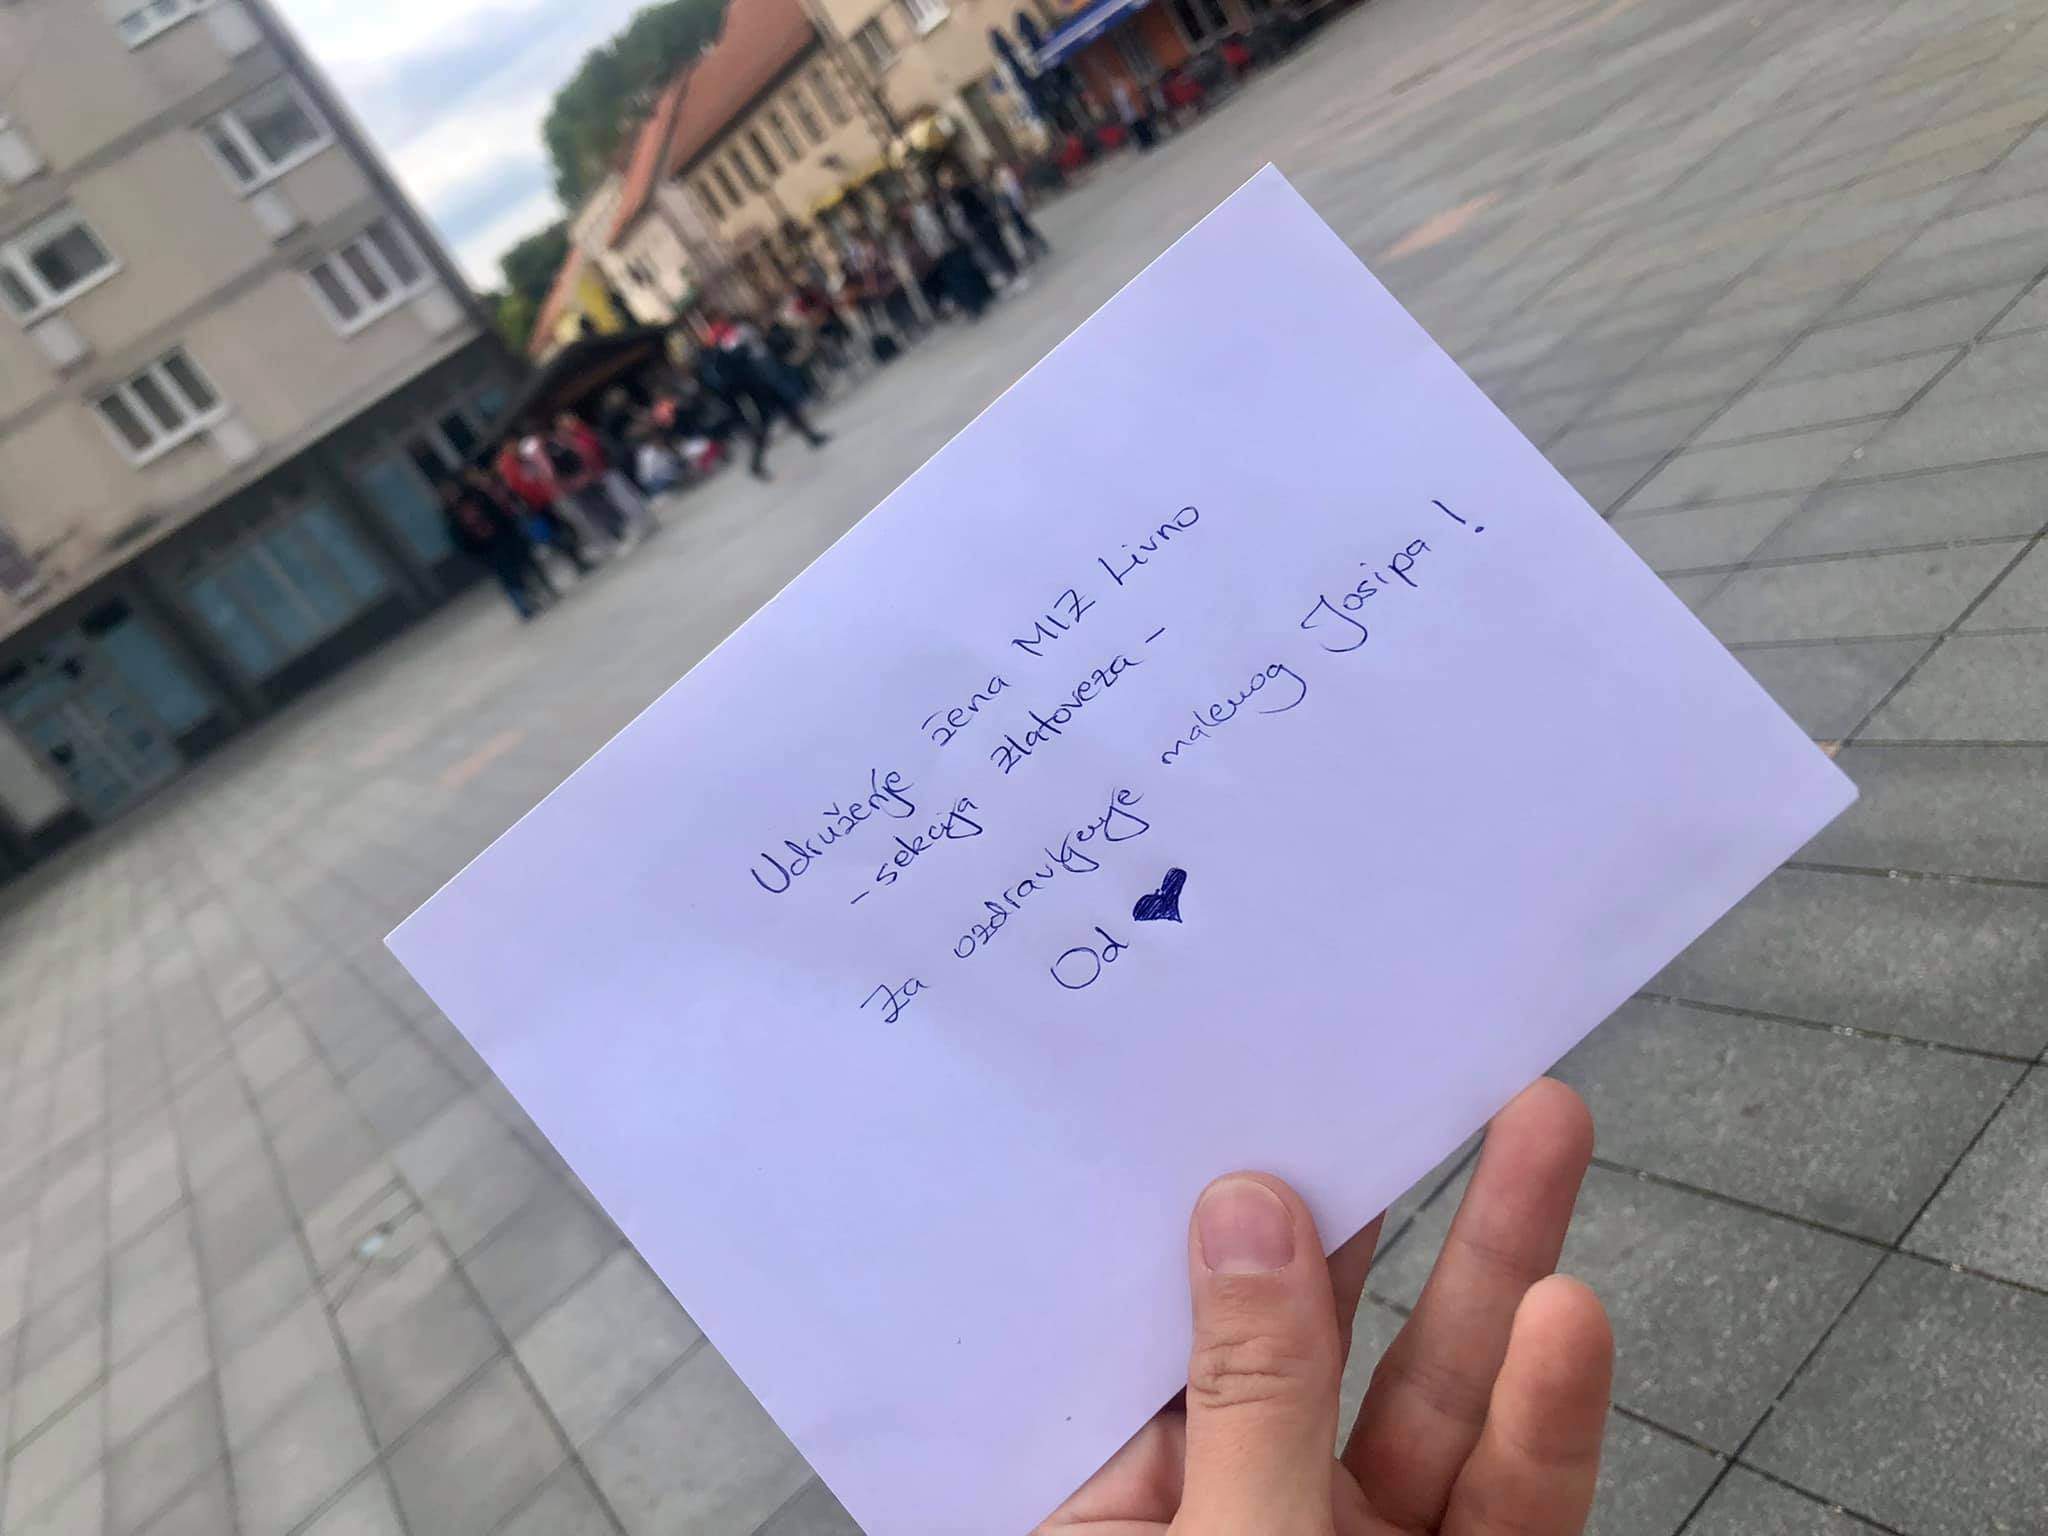 Udruženje žena MIZ Livno
- sekcija zlatoveza -
Za ozdravljenje malenog Josipa!
Od ♥